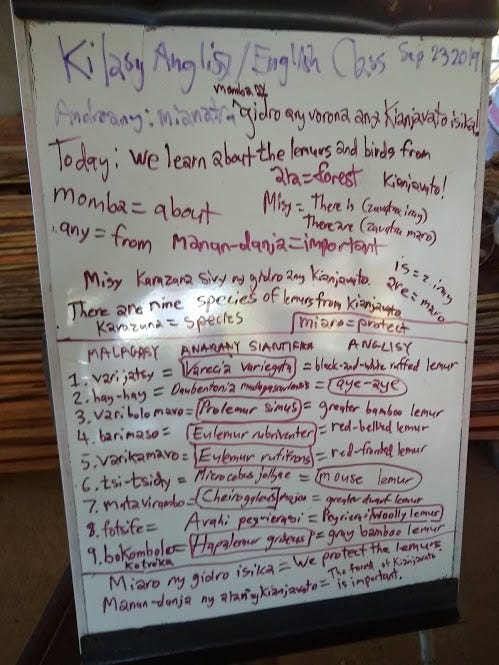 Kilasy Anglisy/English Class Sep 23 2019
momba ny
Androany: mianatra gidro any vorona any Kianjavato isika!
Today: we learn about the lemurs and birds from
Kianjavato!
ala=forest
momba=about
Misy = There is (zavatra iray)
There are (zavatra maro)
any=from manan-danja=important
is=1 iray
are=maro
Misy Karazana Sivy ny gidro any Kianjavato.
There are nine species of lemurs from Kianjavato
Karazana = species
miaro=protect
MALAGASY ANARANY SIANTIFIKA ANGLISY
1. varijatsy = Varecia variegata = black-and-white ruffed lemur
2. hay-hay = Daubentonia madagascariensis = aye-aye
3. varibolomavo= Prolemur simus = greater bamboo lemur
4. barimaso= Eulemur rubriventer = red-bellied lemur
5. varikamavo= Eulemur rufifrons = red-fronted lemur
6. tsi-tsidy= Microcebus jollyae = mouse lemur
7. matavirambo= Cheirogaleus major = greater dwarf lemur
8. fotsife= Avahi peyrierasi = Peyrieras' Woolly lemur
9. bokombolo= Hapalemur griseus = gray bamboo lemur
kotreka
Miaro ny gidro isika = We protect the lemurs.
Manan-danja ny alan'ny Kianjavato = The forest of Kianjavato is important.